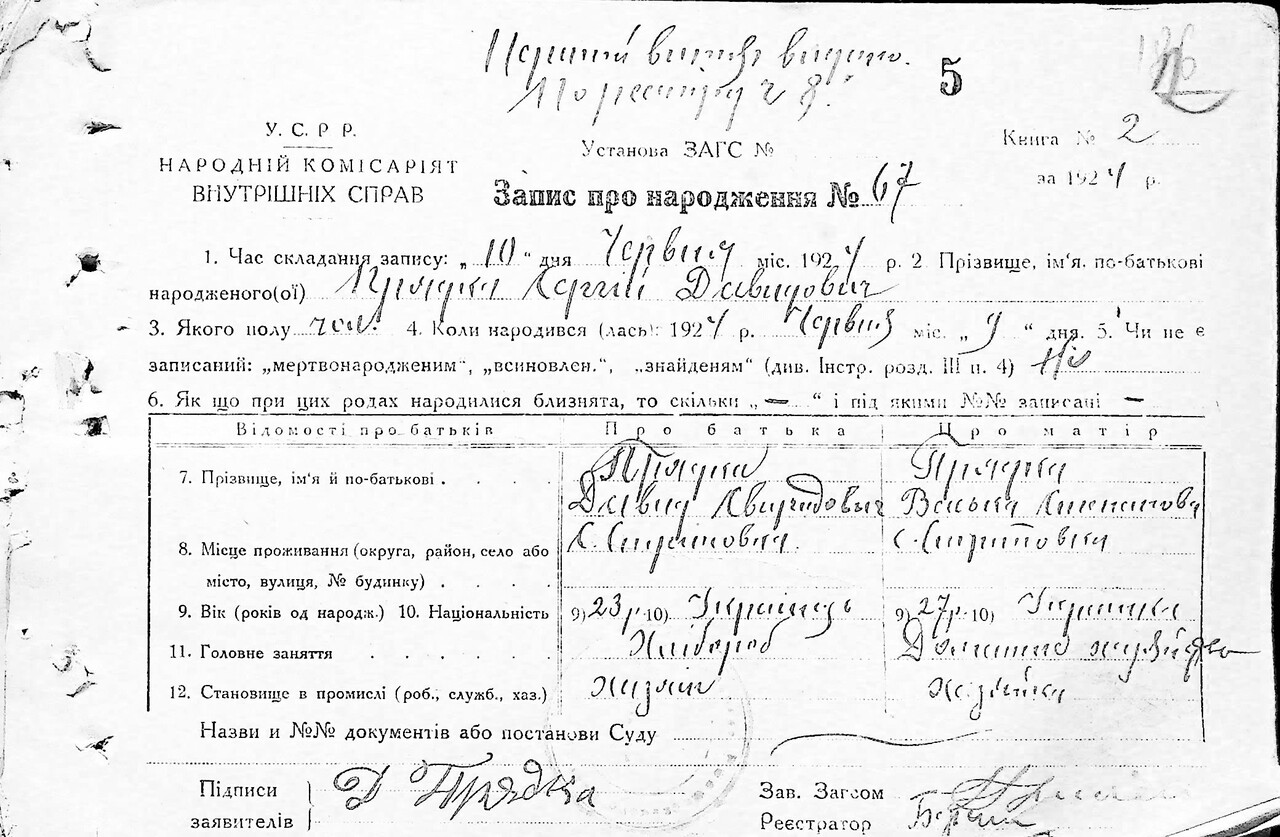 Перший витяг видано.
По реєстру ч 8.
5
У. С. Р. Р.
НАРОДНІЙ КОМІСАРІЯТ
ВНУТРІШНІХ СПРАВ
Установа ЗАГС №
Книга № 2
за 1924 р.
Запис про народження № 67
1. Час складання запису: „ 10 “ дня Червня міс. 1924 р. 2 Прізвище, ім'я, по-батькові
народженого(ої) Прядка Сергій Давидович
3. Якого полу чол. 4. Коли народився (лась): 1924 р. Червня міс. „ 9 “ дня. 5. Чи не є
записаний: „мертвонародженим“, „всиновлен.“, „знайденям“ (див. Інстр. розд. III п. 4) Ні
6. Як що при цих родах народилися близнята, то скільки „ — “ і під якими №№ записані —
Відомості про батьків Про батька Про матір
7. Прізвище, ім'я й по-батькові . . . . Прядка Прядка
Давид Василька
8. Місце проживання (округа, район, село або С. С.
місто, вулиця, № будинку) . . . .
9. Вік (років од народж.) 10. Національність 9) 23 р. 10) Українець 9) 27 р. 10) Українка
11. Головне заняття . . . . . Хлібороб Домашнє хазяйство
12. Становище в промислі (роб., служб., хаз.) Хазяін Хазяйка
Назви и №№ документів або постанови Суду
Підписи
заявителів
Д Прядка
Зав. Загсом
Реєстратор